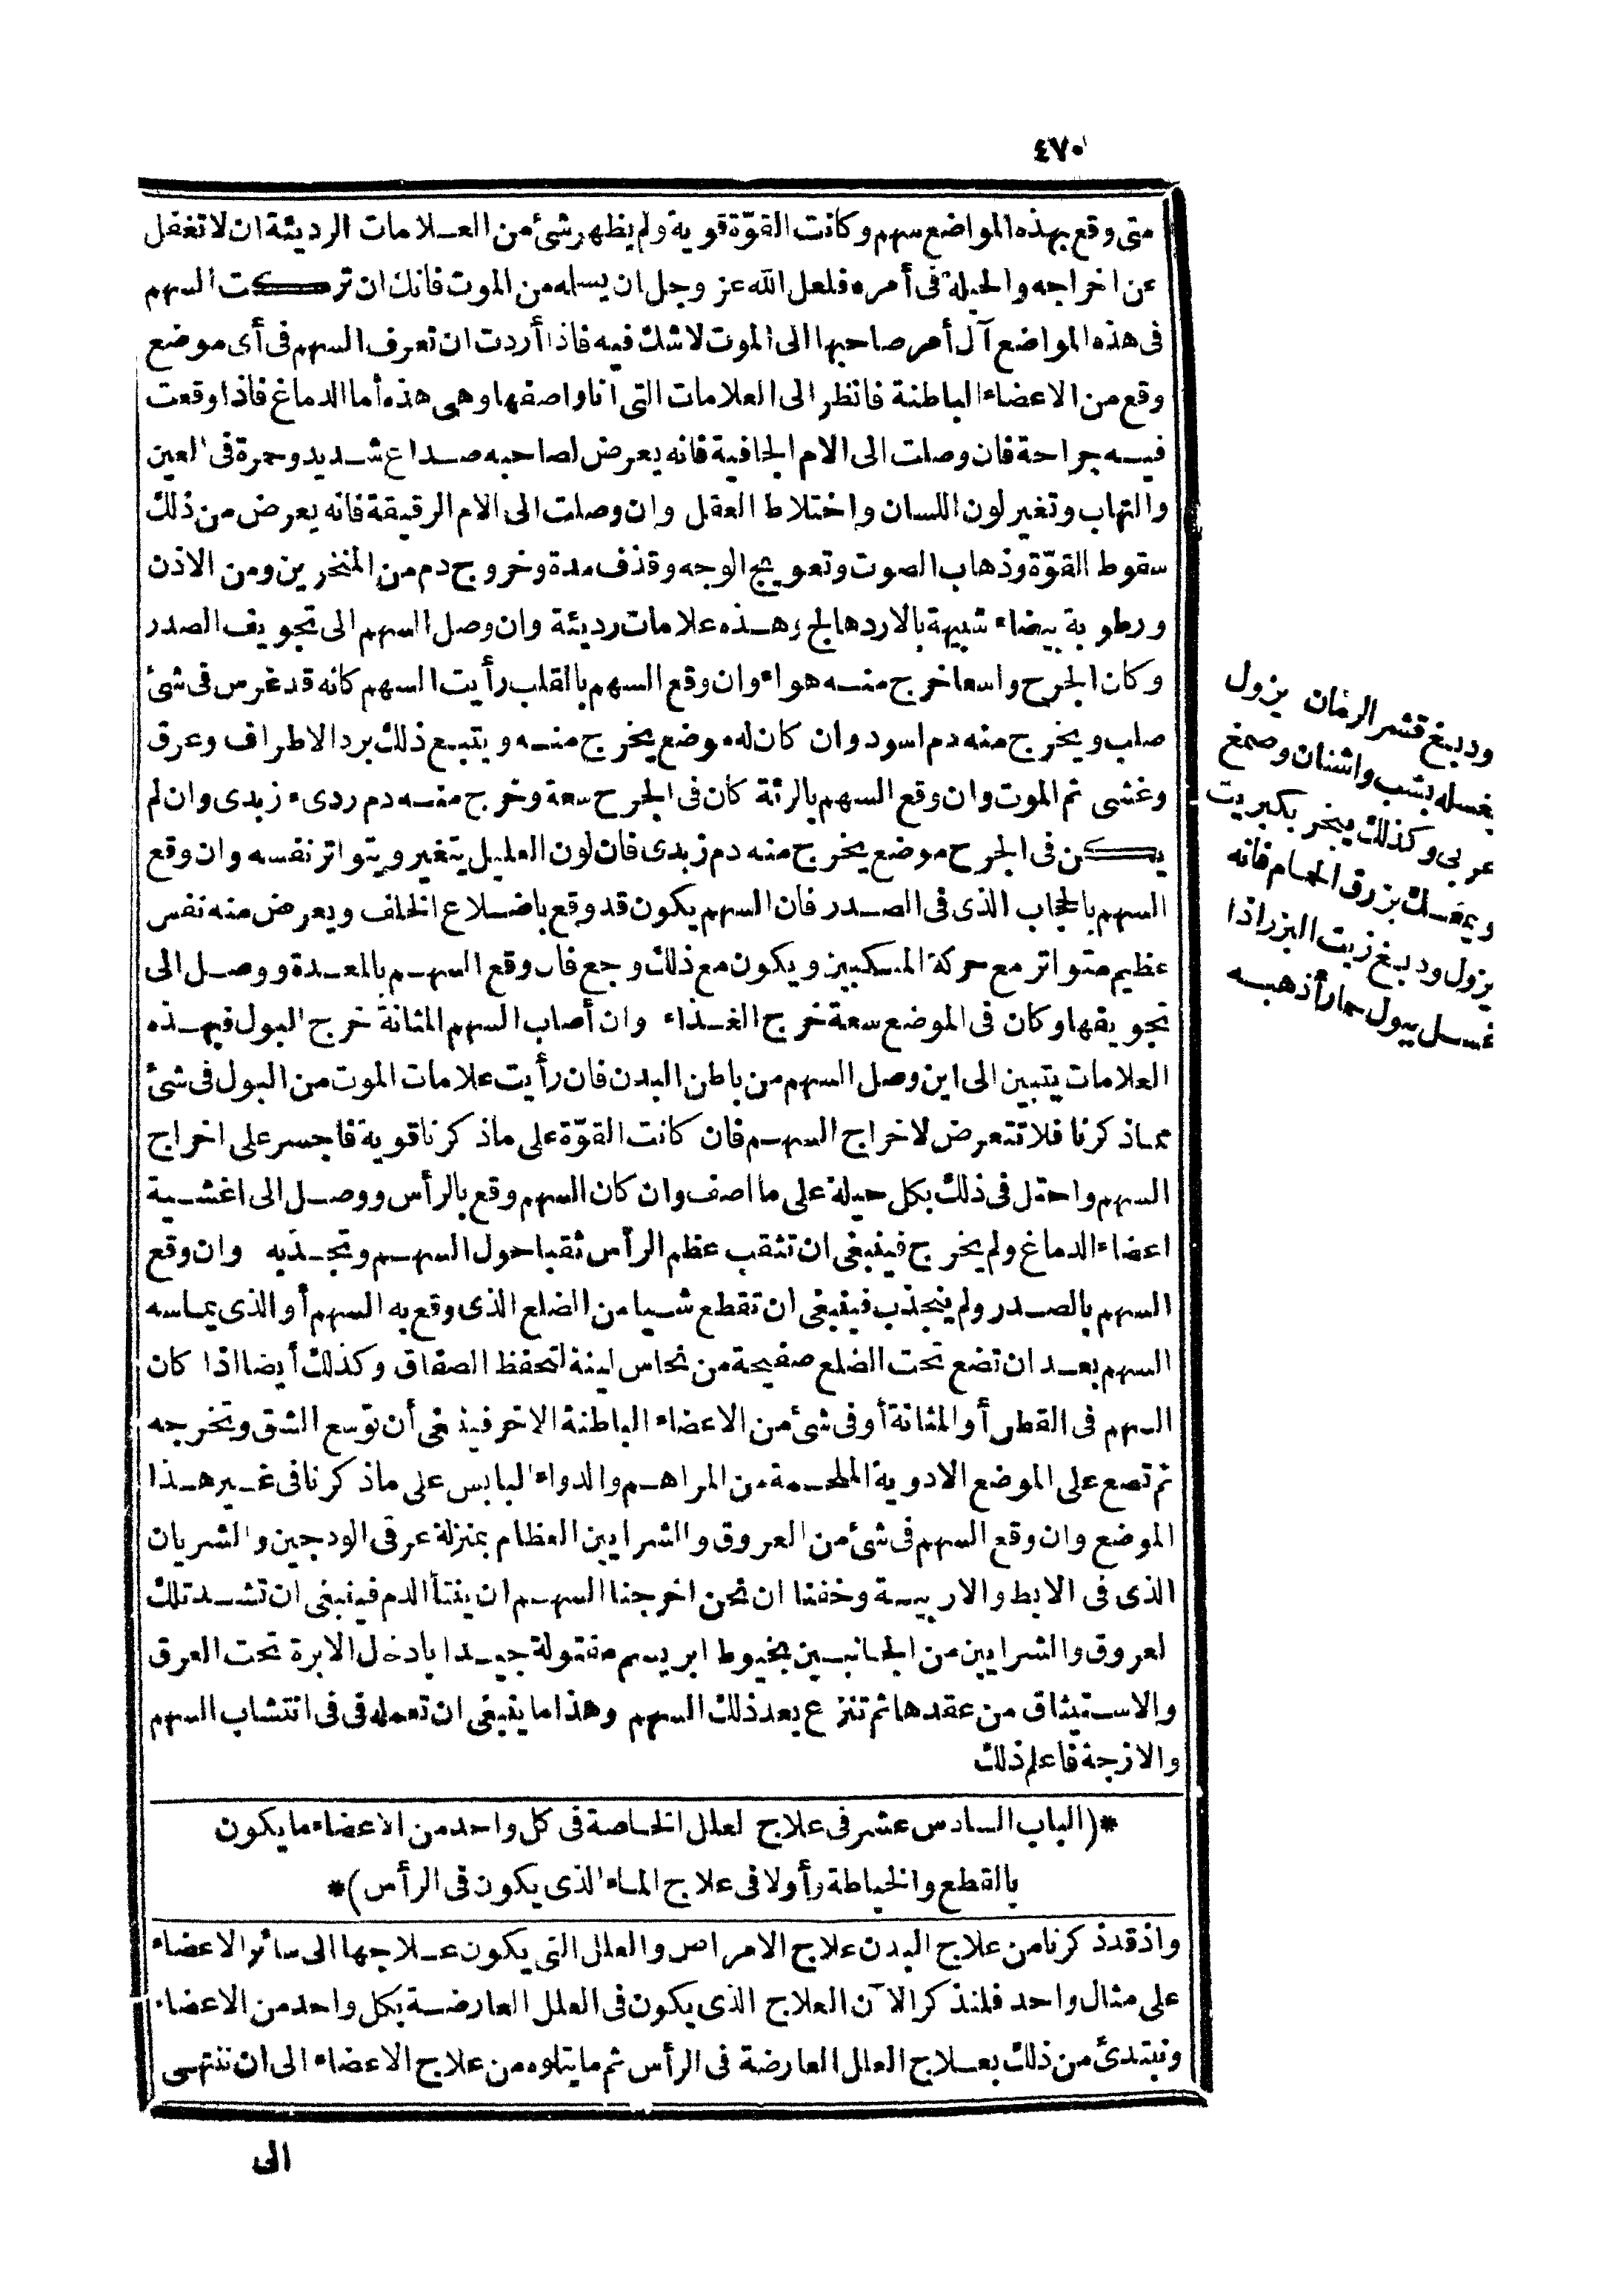 ٤٧٠
متى وقع بهذه المواضع سهم وكانت القوّة قوية ولم يظهر شئ من العلامات الرديئة ان لا تغفل
عن اخراجه والحيلة فى أمره فلعل الله عز وجل ان يسلمه من الموت فانك ان تركت السهم
فى هذه المواضع آل أمر صاحبها الى الموت لا شك فيه فاذا أردت ان تعرف السهم فى أى موضع
وقع من الاعضاء الباطنة فانظر الى العلامات التى أنا واصفها وهى هذه أما الدماغ فاذا وقعت
فيه جراحة فان وصلت الى الام الجافية فانه يعرض لصاحبه صداع شديد وحمرة فى العين
والتهاب وتغير لون اللسان واختلاط العقل وان وصلت الى الام الرقيقة فانه يعرض من ذلك
سقوط القوّة وذهاب الصوت وتعويج الوجه وقذف مدة وخروج دم من المنخرين ومن الاذن
ورطوبة بيضاء شبيهة بالاردهالج وهذه علامات رديئة وان وصل السهم الى تجويف الصدر
وكان الجرح واسعا خرج منه هواء وان وقع السهم بالقلب رأيت السهم كانه قد غرس فى شئ
صلب ويخرج منه دم اسود وان كان له موضع يخرج منه ويتبع ذلك برد الاطراف وعرق
وغشى ثم الموت وان وقع السهم بالرئة كان فى الجرح سعة وخرج منه دم ردىء زبدى وان لم
يكن فى الجرح موضع يخرج منه دم زبدى فان لون العليل يتغير ويتواتر نفسه وان وقع
السهم بالحجاب الذى فى الصدر فان السهم يكون قد وقع باضلاع الخلف ويعرض منه نفس
عظيم متواتر مع حركة المنكبين ويكون مع ذلك وجع فان وقع السهم بالمعدة ووصل الى
تجويفها وكان فى الموضع سعة خرج الغذاء وان أصاب السهم المثانة خرج البول فبهذه
العلامات يتبين الى اين وصل السهم من باطن البدن فان رأيت علامات الموت من البول فى شئ
مما ذكرنا فلا تتعرض لاخراج السهم فان كانت القوّة على ماذكرنا قوية فاجسر على اخراج
السهم واحتل فى ذلك بكل حيلة على ما اصف وان كان السهم وقع بالرأس ووصل الى اغشية
اعضاء الدماغ ولم يخرج فينبغى ان تثقب عظم الرأس ثقبا حول السهم وتجذبه وان وقع
السهم بالصدر ولم ينجذب فينبغى ان تقطع شيا من الضلع الذى وقع به السهم أو الذى يماسه
السهم بعد ان تضع تحت الضلع صفيحة من نحاس لينة لتحفظ الصفاق وكذلك أيضا اذا كان
السهم فى القطر أو المثانة أو فى شئ من الاعضاء الباطنة الاخر فينبغى أن توسع الشق وتخرجه
ثم تضع على الموضع الادوية الملحمة من المراهم والدواء اليابس على ماذكرنا فى غير هذا
الموضع وان وقع السهم فى شئ من العروق والشرايين العظام بمنزلة عرقى الودجين والشريان
الذى فى الابط والاربية وخفنا ان نحن اخرجنا السهم ان ينتأ الدم فينبغى ان تشد تلك
لعروق والشرايين من الجانبين بخيوط ابريسم مفتولة جيدا بادخل الابرة تحت العرق
والاستيثاق من عقدها ثم تنزع بعد ذلك السهم وهذا ما ينبغى ان تعمله فى فى انتشاب السهم
والازجة فاعلم ذلك
*(الباب السادس عشر فى علاج لعلل الخاصة فى كل واحد من الاعضاء ما يكون
بالقطع والخياطة وأولا فى علاج الماء الذى يكون فى الرأس)*
واذ قد ذكرنا من علاج البدن علاج الامراض والعلل التى يكون علاجها الى سائر الاعضاء
على مثال واحد فلنذكر الآن العلاج الذى يكون فى العلل العارضة بكل واحد من الاعضاء
ونبتدئ من ذلك بعلاج العلل العارضة فى الرأس ثم ما يتلوه من علاج الاعضاء الى ان ننتهى
الى
ودبغ قشر الرمان يزول
بغسله بشب واشنان وصمغ
عربى وكذلك يبخر بكبريت
بزرق الحمام فانه
يزول ودبغ زيت البزر اذا
غسل ببول حمار أذهبه